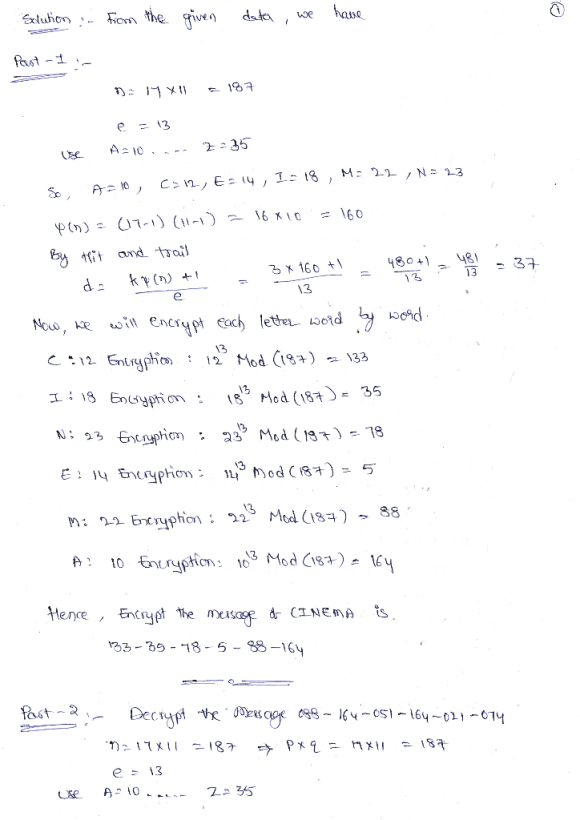 Solution :- From the given data, we have
①
Part-1 :-
n = 17 x 11 = 187
e = 13
use A=10 ..... Z=35
So, A=10, C=12, E=14, I=18, M=22, N=23
φ(n) = (17-1) (11-1) = 16 x 10 = 160
By Hit and trail
d = kφ(n)+1 / e = 3 x 160 +1 / 13 = 480+1 / 13 = 481 / 13 = 37
Now, we will encrypt each letter word by word.
C : 12 Encryption : 12^13 Mod (187) = 133
I : 18 Encryption : 18^13 Mod (187) = 35
N : 23 Encryption : 23^13 Mod (187) = 78
E : 14 Encryption : 14^13 Mod (187) = 5
M : 22 Encryption : 22^13 Mod (187) = 88
A : 10 Encryption : 10^13 Mod (187) = 164
Hence, Encrypt the message of CINEMA is.
133-35-78-5-88-164
Part-2 :- Decrypt the Message 088-164-051-164-021-074
n = 17 x 11 = 187 ⇒ P x q = 17 x 11 = 187
e = 13
use A=10 ..... Z=35